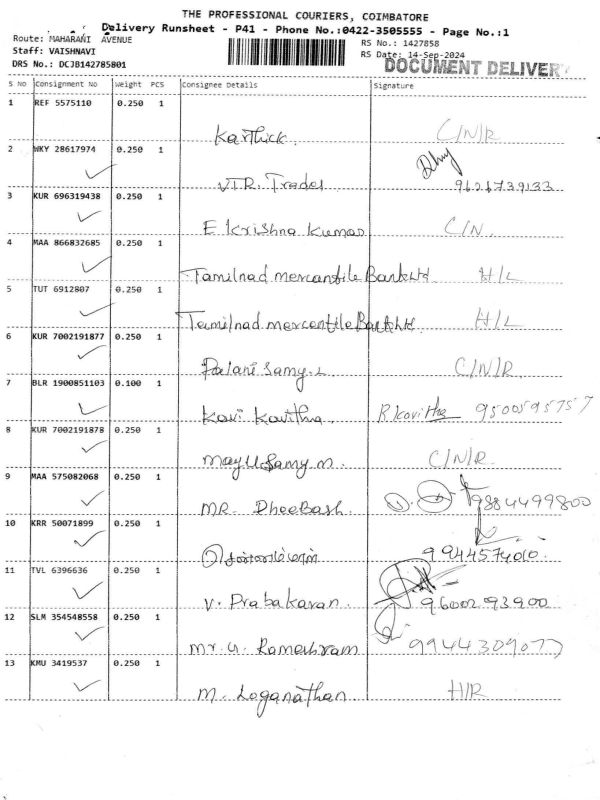 THE PROFESSIONAL COURIERS, COIMBATORE
Delivery Runsheet - P41 - Phone No.:0422-3505555 - Page No.:1
Route: MAHARANI AVENUE
RS No.: 1427858
Staff: VAISHNAVI
RS Date: 14-Sep-2024
DRS No.: DCJB142785801
DOCUMENT DELIVERY
S No Consignment No Weight PCS Consignee Details Signature
1 REF 5575110 0.250 1
Karthick C/N/R
2 WKY 28617974 0.250 1
VTR. Trades
3 KUR 696319438 0.250 1
E Krishna Kumar C/N.
4 MAA 866832685 0.250 1
Tamilnad mercantile Bank Ltd H/L
5 TUT 6912807 0.250 1
Tamilnad mercantile Bank Ltd H/L
6 KUR 7002191877 0.250 1
Palani Samy. L C/N/R.
7 BLR 1900851103 0.100 1
Kavi Kavitha R.Kavitha 9500595757
8 KUR 7002191878 0.250 1
C/N/R.
9 MAA 575082068 0.250 1
MR. Dheebash 9884499800
10 KRR 50071899 0.250 1
9944574010.
11 TVL 6396636 0.250 1
V. Prabakaran. 9600293900
12 SLM 354548558 0.250 1
Mr. G. Rameshram 9944309077
13 KMU 3419537 0.250 1
M. Loganathan H/R